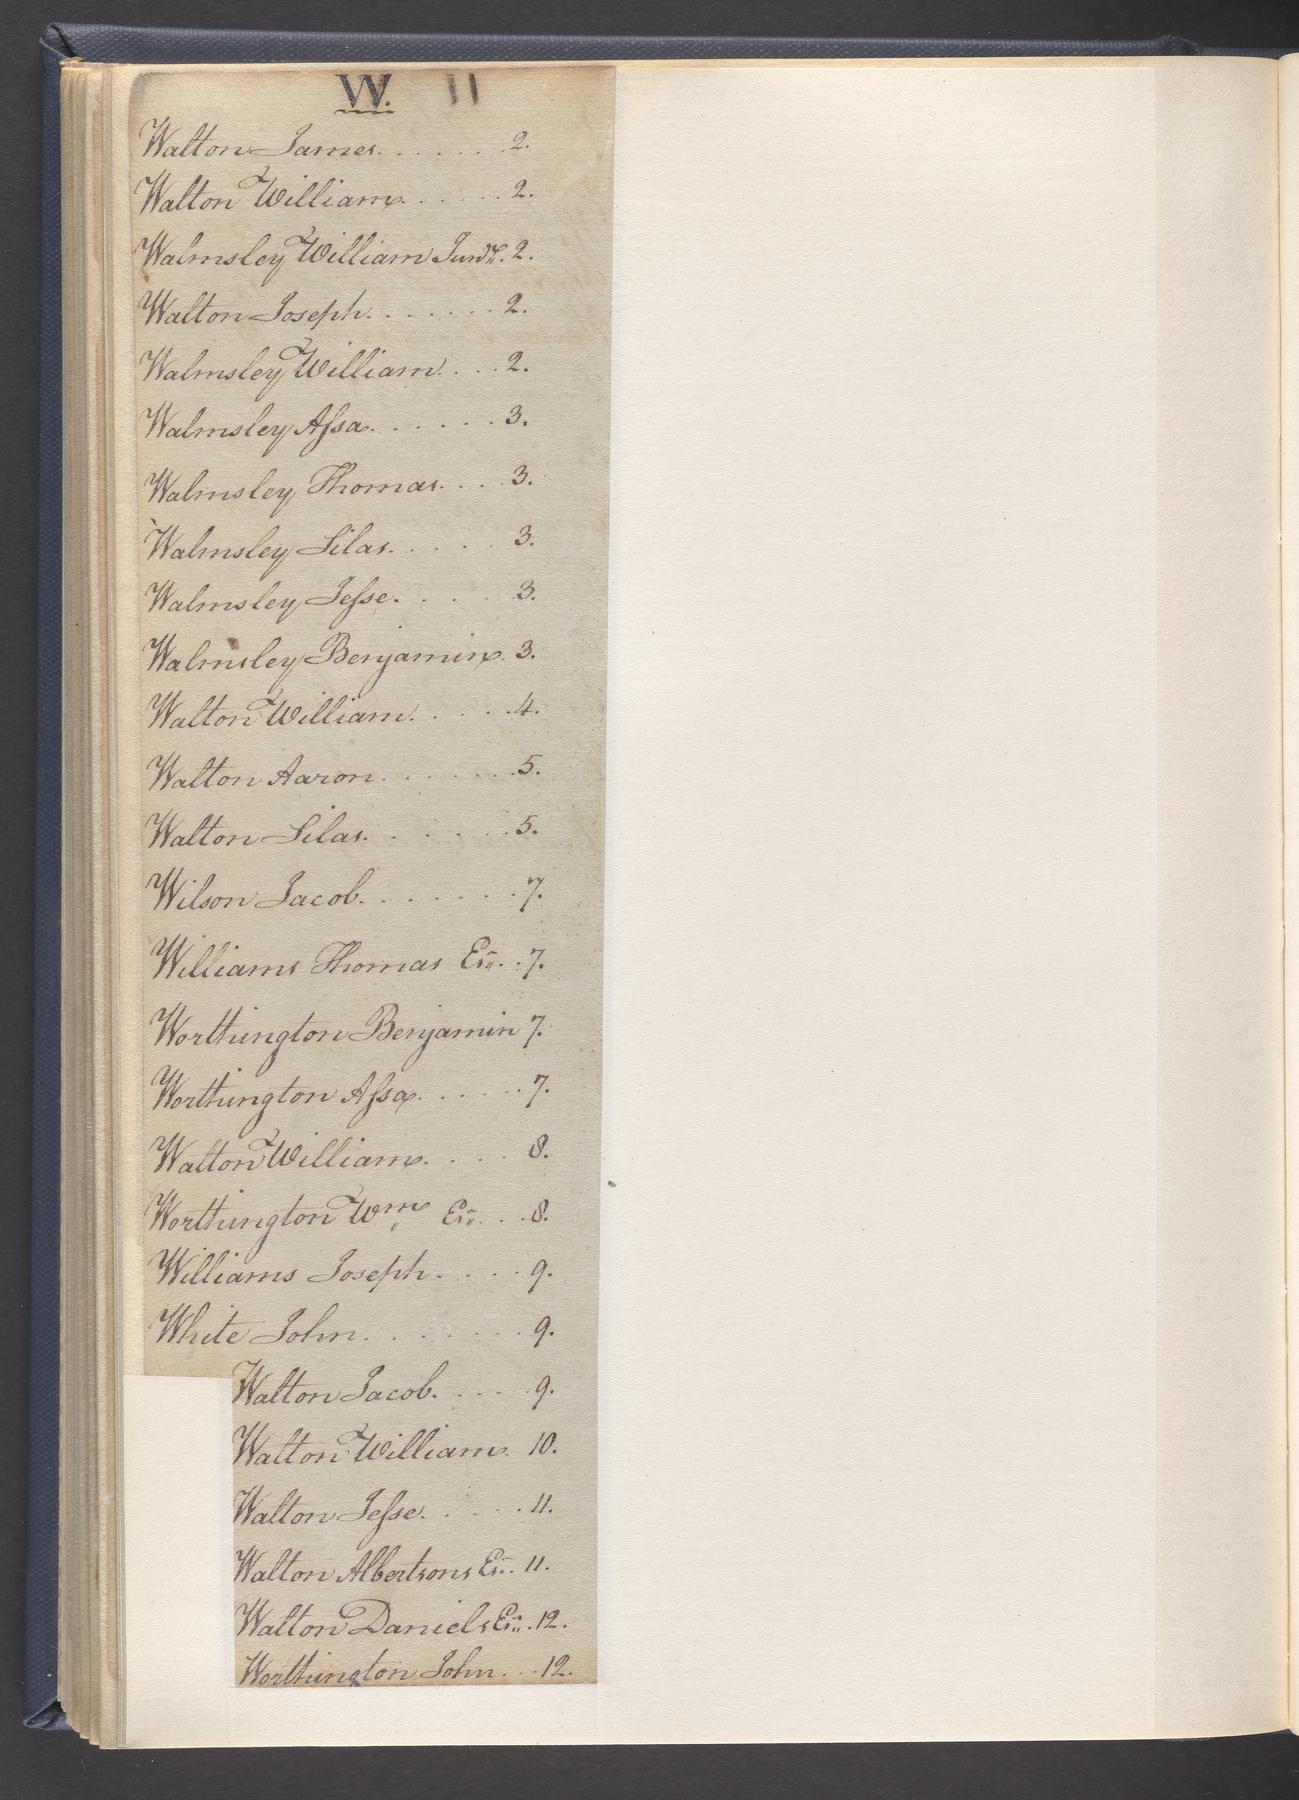 W. 11
Walton James. . . . . . 2.
Walton William. . . . . 2.
Walmsley William Junr. 2.
Walton Joseph. . . . . . . 2.
Walmsley William. . . . 2.
Walmsley Assa. . . . . . 3.
Walmsley Thomas. . . . 3.
Walmsley Silas. . . . . 3.
Walmsley Jesse. . . . 3.
Walmsley Benjamin. 3.
Walton William. . . . . 4.
Walton Aaron. . . . . . . 5.
Walton Silas. . . . . . 5.
Wilson Jacob. . . . . . . 7.
Williams Thomas Esr. . 7.
Worthington Benjamin 7.
Worthington Assa. . . . . 7.
Walton William. . . . 8.
Worthington Wm Esr. . . 8.
Williams Joseph. . . . . 9.
White John. . . . . . . 9.
Walton Jacob. . . . . 9.
Walton William. 10.
Walton Jesse. . . . . 11.
Walton Albertsons Esr. 11.
Walton Daniels Esr. . 12.
Worthington John. . . 12.